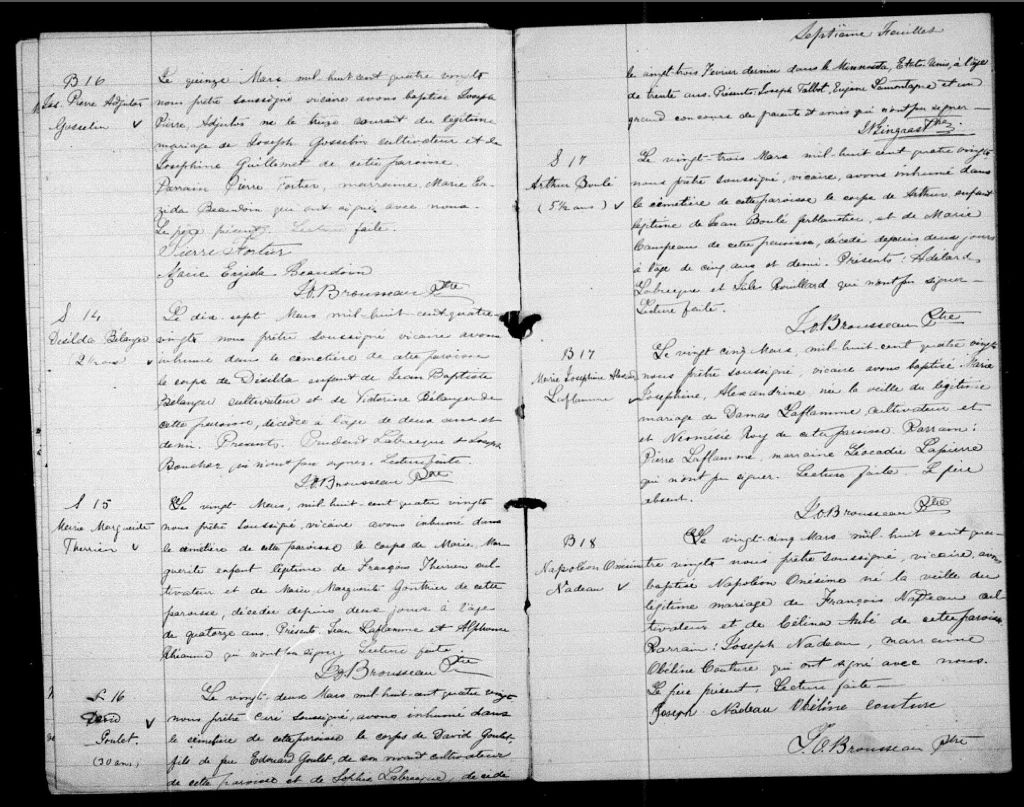 B 16
Jos. Pierre Adjutor
Gosselin
Le quinze Mars mil huit cent quatre vingts
nous prêtre soussigné vicaire avons baptisé Joseph
Pierre, Adjutor né le treize courant du légitime
mariage de Joseph Gosselin cultivateur et de
Josephine Guillemet de cette paroisse.
Parrain Pierre Fortier, marraine Marie Er-
zida Beaudoin qui ont signé avec nous.
Le père présent. Lecture faite.
Pierre Fortier
Marie Erzida Beaudoin
J.O. Brousseau Ptre
S 14
Désilda Bélanger
2½ ans
Le dix sept Mars mil-huit-cent-quatre
vingts nous prêtre soussigné vicaire avons
inhumé dans le cimetière de cette paroisse
le corps de Désilda enfant de Jean Baptiste
Bélanger cultivateur et de Victorine Bélanger de
cette paroisse, décédée à l'age de deux ans et
demi. Présents. Prudent Labrecque et Joseph
Boucher qui n'ont pu signer. Lecture faite.
J.O. Brousseau Ptre
S 15
Marie Marguerite
Therrien
Le vingt Mars, mil-huit-cent quatre vingts
nous prêtre soussigné, vicaire avons inhumé dans
le cimetière de cette paroisse le corps de Marie, Mar-
guerite enfant légitime de François Therrien cul-
tivateur et de Marie Marguerite Gonthier de cette
paroisse, décédée depuis deux jours à l'age
de quatorze ans. Présents, Jean Laflamme et Alphonse
qui n'ont pu signer. Lecture faite.
J.O. Brousseau Ptre
S. 16
David
Goulet.
(30 ans)
Le vingt-deux Mars mil-huit-cent quatre vingt
nous prêtre curé soussigné, avons inhumé dans
le cimetière de cette paroisse le corps de David Goulet,
fils de feu Edouard Goulet, de son vivant cultivateur
de cette paroisse et de Sophie Labrecque, décédé
Septième Feuillet
le vingt-trois Fevrier dernier dans le Minnesota, Etats-Unis, à l'age
de trente ans. Présents, Joseph Talbot, Eugène Lamontagne et un
grand concours de parents et amis qui n'ont pu signer —
S 17
Arthur Boulé
(5½ ans)
Le vingt-trois Mars mil-huit cent quatre vingts
nous prêtre soussigné, vicaire, avons inhumé dans
le cimetière de cette paroisse le corps de Arthur enfant
légitime de Jean Boulé ferblantier, et de Marie
Campeau de cette paroisse, décédé depuis deux jours
à l'age de cinq ans et demi. Présents: Adelard
Labrecque et Jules Rouillard qui n'ont pu signer —
Lecture faite.
J.O. Brousseau Ptre
B 17
Marie Josephine
Laflamme
Le vingt cinq Mars, mil-huit cent quatre vingts
nous prêtre soussigné, vicaire avons baptisé Marie
Josephine, Alexandrine née la veille du légitime
mariage de Damas Laflamme, cultivateur et
et Néomésie Roy de cette paroisse. Parrain:
Pierre Laflamme, marraine Léocadie Lapierre
qui n'ont pu signer. Lecture faite — Le père
absent.
J.O. Brousseau Ptre
B 18
Napoléon Onésime
Nadeau
Le vingt-cinq Mars mil-huit cent qua-
tre vingts nous prêtre soussigné, vicaire, avons
baptisé Napoléon Onésime né la veille du
légitime mariage de François Nadeau cul-
tivateur et de Célina Aubé de cette paroisse
Parrain: Joseph Nadeau, marraine
Obéline Couture qui ont signé avec nous.
Le père présent. Lecture faite —
Joseph Nadeau Obéline Couture
J.O. Brousseau ptre